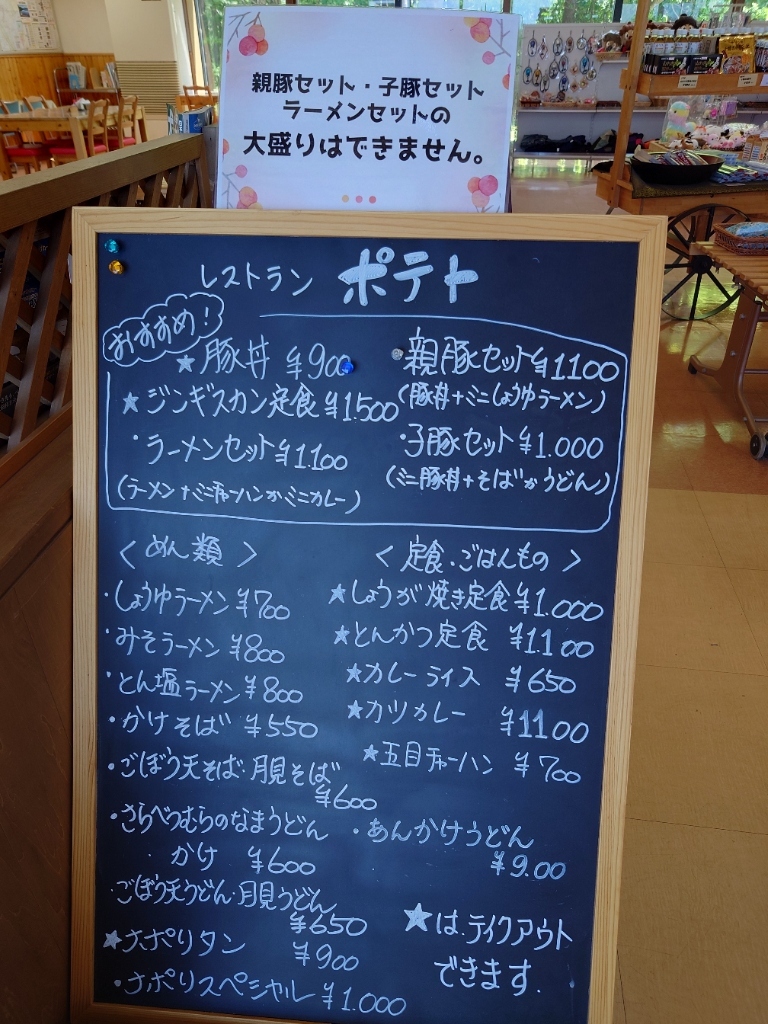 親豚セット・子豚セット
ラーメンセットの
大盛りはできません。
レストラン ポテト
おすすめ!
★豚丼 ¥900
★ジンギスカン定食 ¥1500
・ラーメンセット ¥1100
(ラーメン+ミニチャーハンかミニカレー)
親豚セット ¥1100
(豚丼+ミニしょうゆラーメン)
・子豚セット ¥1.000
(ミニ豚丼+そばかうどん)
<めん類>
・しょうゆラーメン ¥700
・みそラーメン ¥800
・とん塩ラーメン ¥800
・かけそば ¥550
・ごぼう天そば・月見そば
¥600
・さらべつむらのなまうどん
・かけ ¥600
・ごぼう天うどん・月見うどん
¥650
★ナポリタン ¥900
・ナポリスペシャル ¥1.000
<定食・ごはんもの>
★しょうが焼き定食 ¥1.000
★とんかつ定食 ¥1100
★カレーライス ¥650
★カツカレー ¥1100
★五目チャーハン ¥700
・あんかけうどん
¥9.00
★は、テイクアウト
できます.